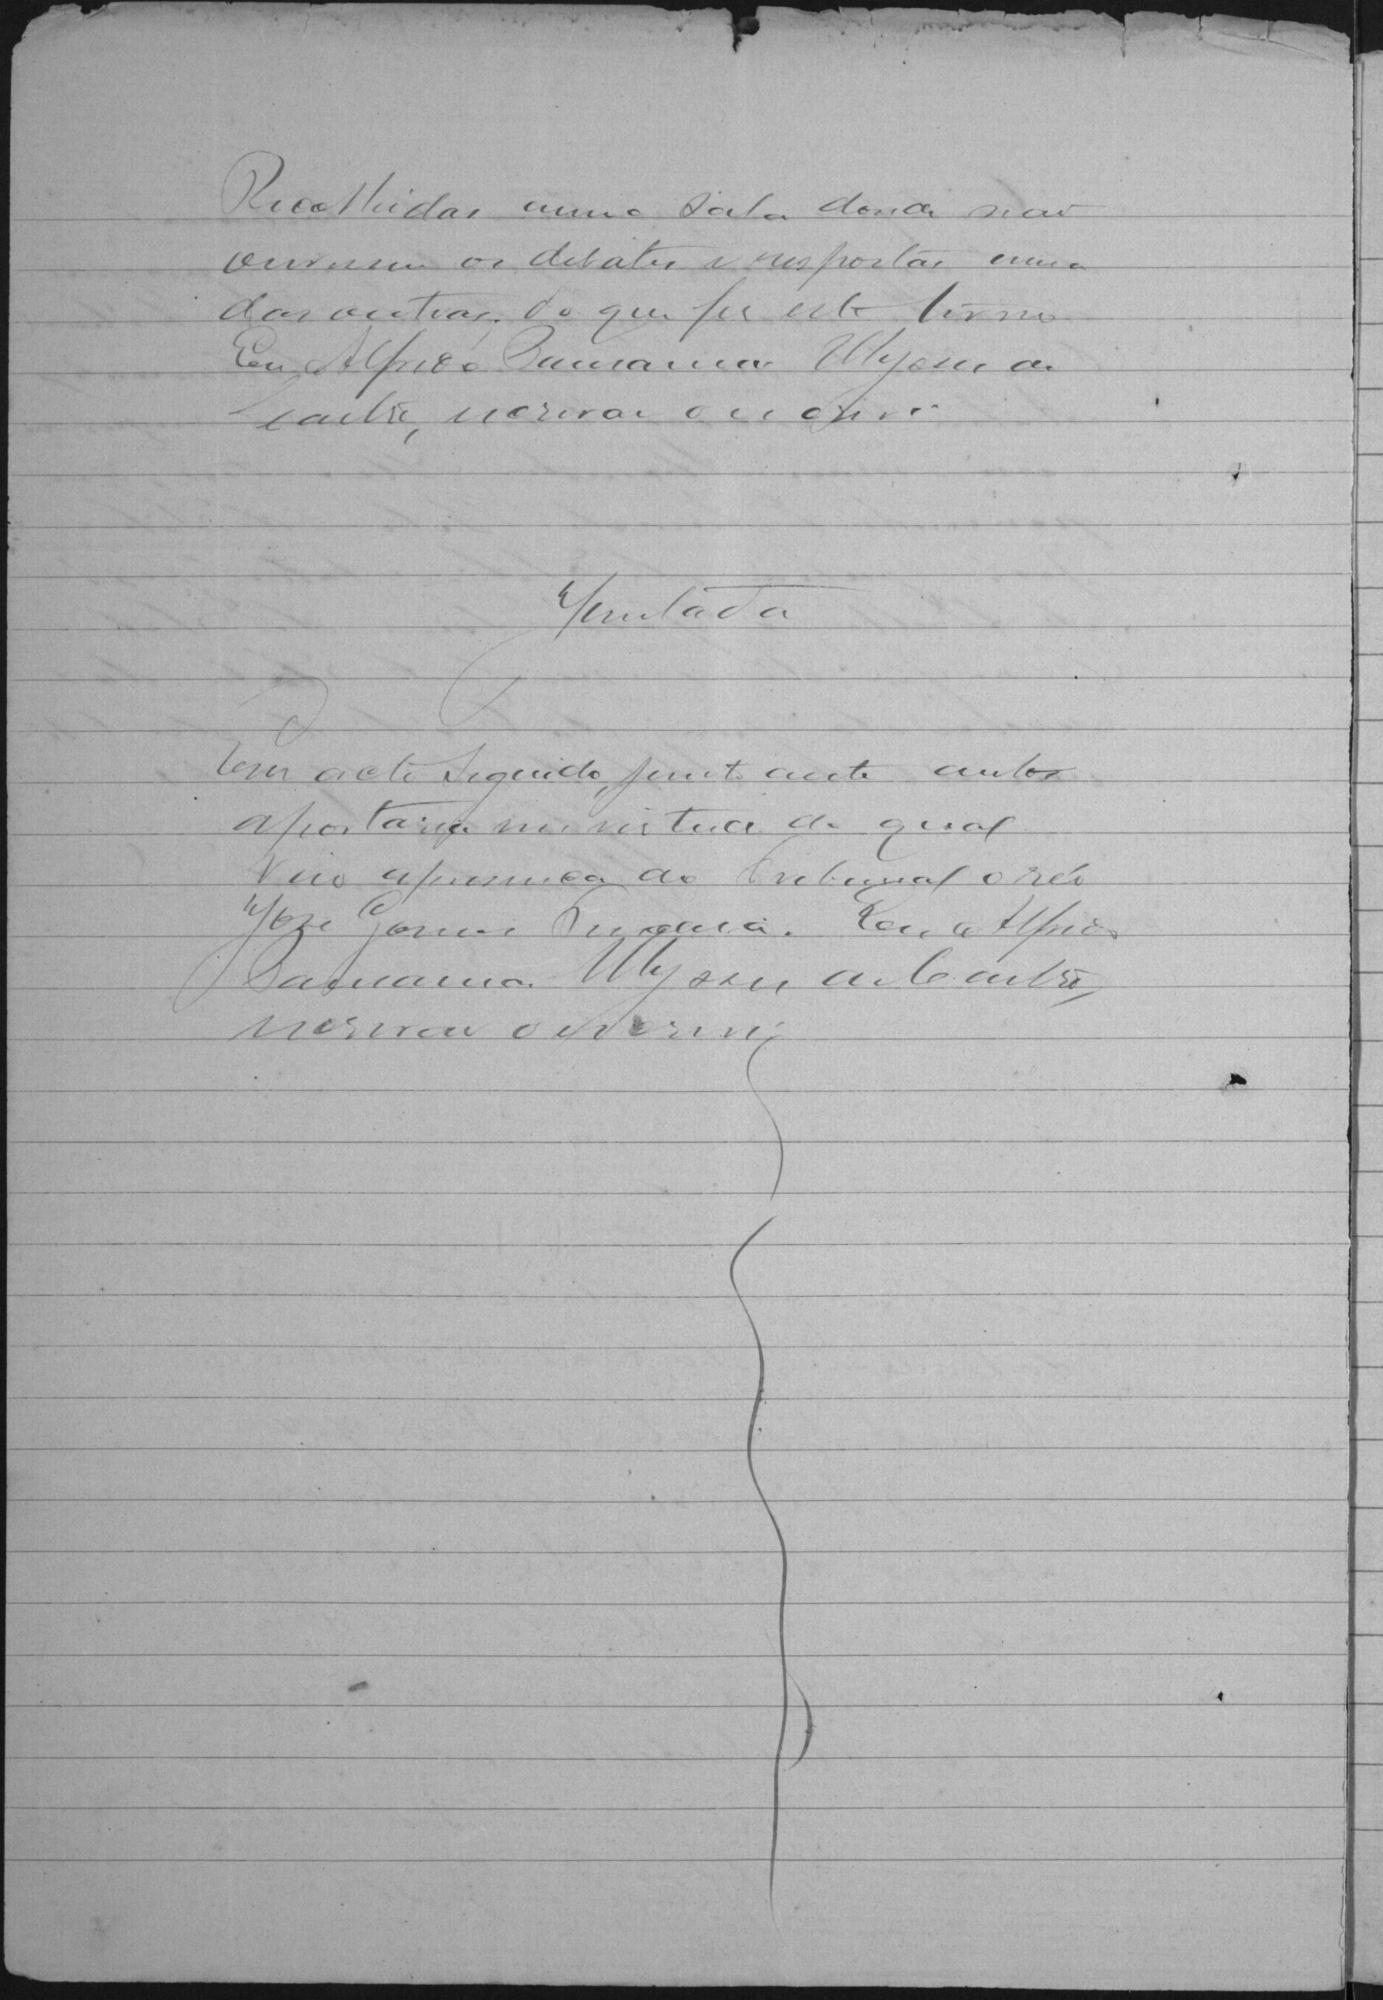 Recolhidas numa sala donde não
ouvissem os debates e respostas umas
das outras, do que fiz este termo
Eu Alfredo Ulysses de
Castro, escrivão o escrevi
Juntada
Em acto seguido, junto a este autos
a portaria em virtude da qual
veio a presença do Tribunal o réo
José Gomes Eu Alfredo
Ulysses de Castro,
escrivão o escrevi